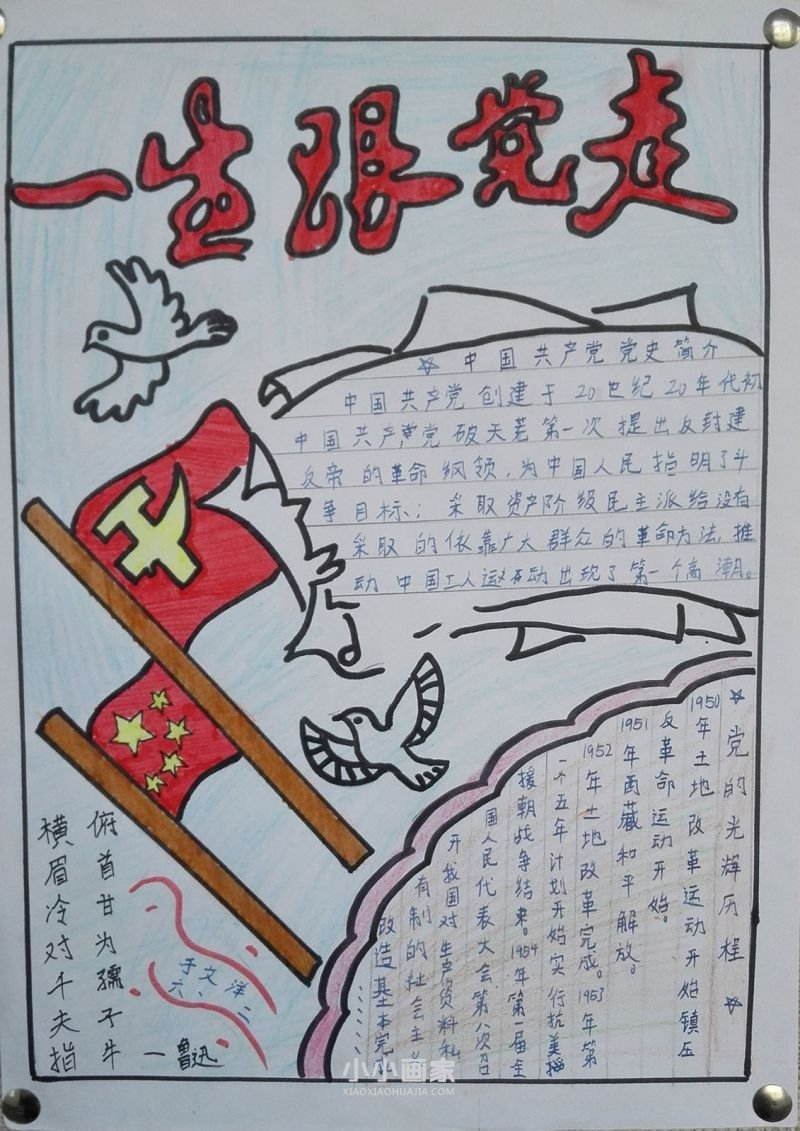 一生跟党走
☆ 中国共产党党史简介
中国共产党创建于20世纪20年代初
中国共产党破天荒第一次提出反封建
反帝的革命纲领,为中国人民指明了斗
争目标;采取资产阶级民主派给没有
采取的依靠广大群众的革命方法,推
动中国工人运动出现了第一个高潮。
☆党的光辉历程☆
1950年土地改革运动开始镇压
反革命运动开始。
1951年西藏和平解放。
1952年土地改革完成。1953年第
一个五年计划开始实行抗美援
援朝战争结束。1954年第一届全
国人民代表大会第八次召
开我国对生产资料私
有制的社会主义
改造基本完
横眉冷对千夫指
俯首甘为孺子牛
一鲁迅
六、二
于文洋
小小画家
XIAOXIAOHUAJIA.COM